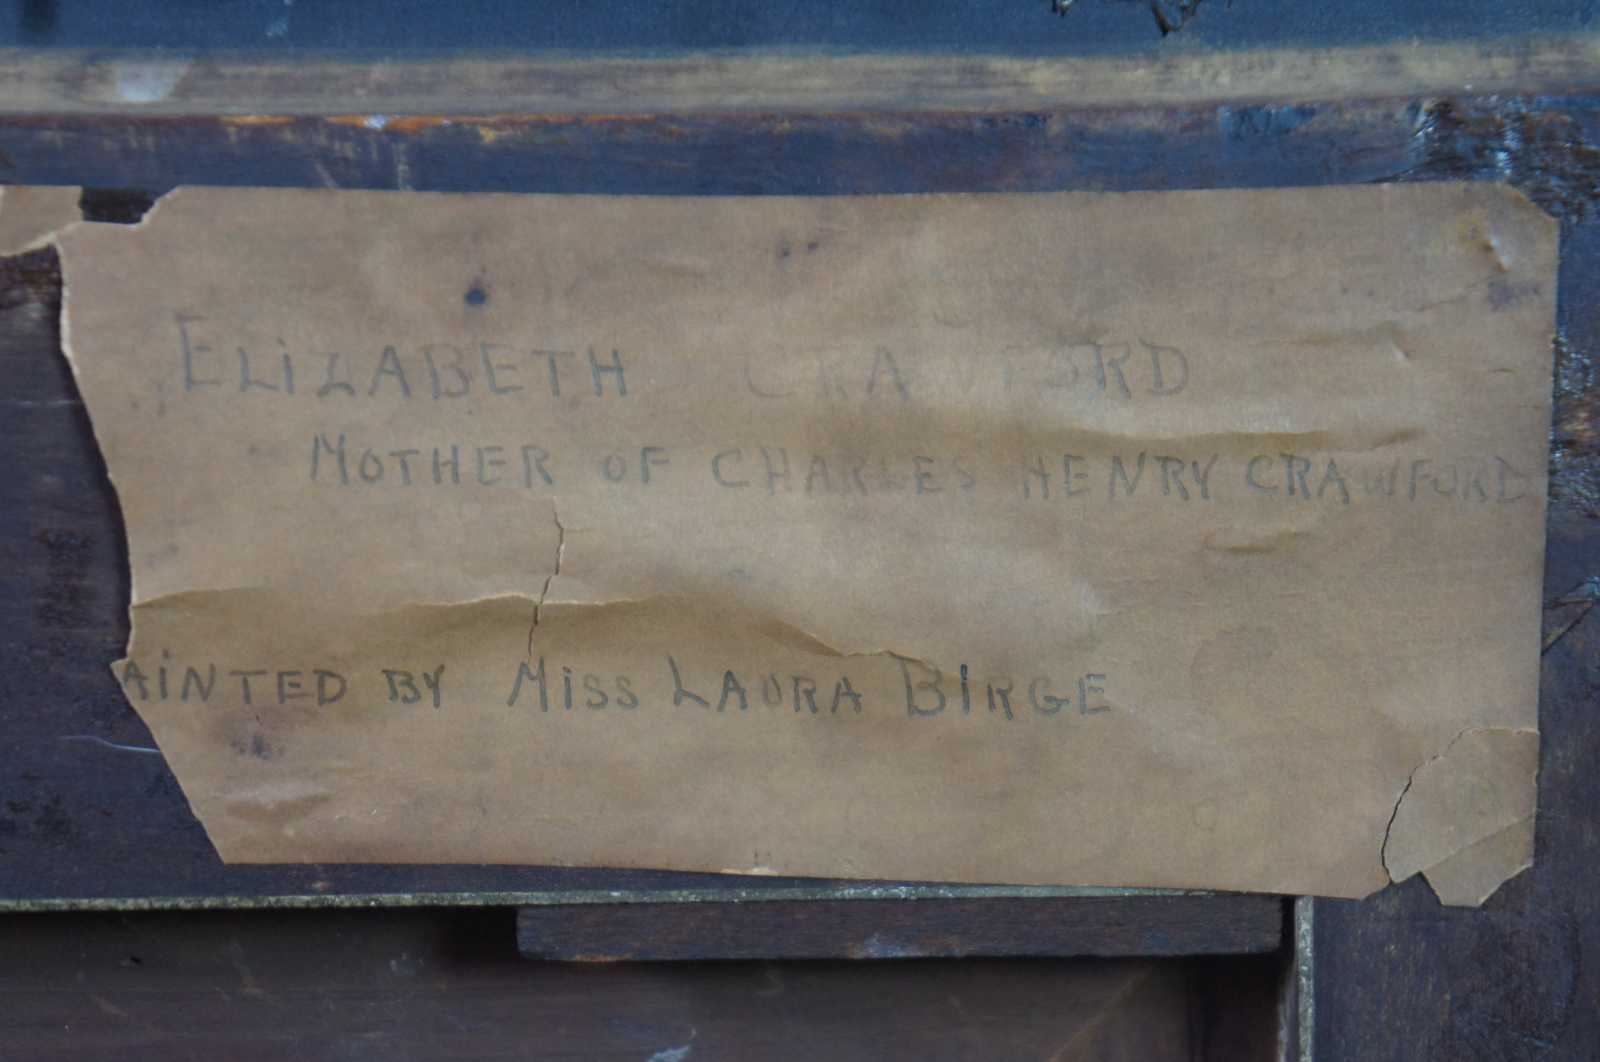 ELIZABETH CRAWFORD
MOTHER OF CHARLES HENRY CRAWFORD
AINTED BY MISS LAURA BIRGE